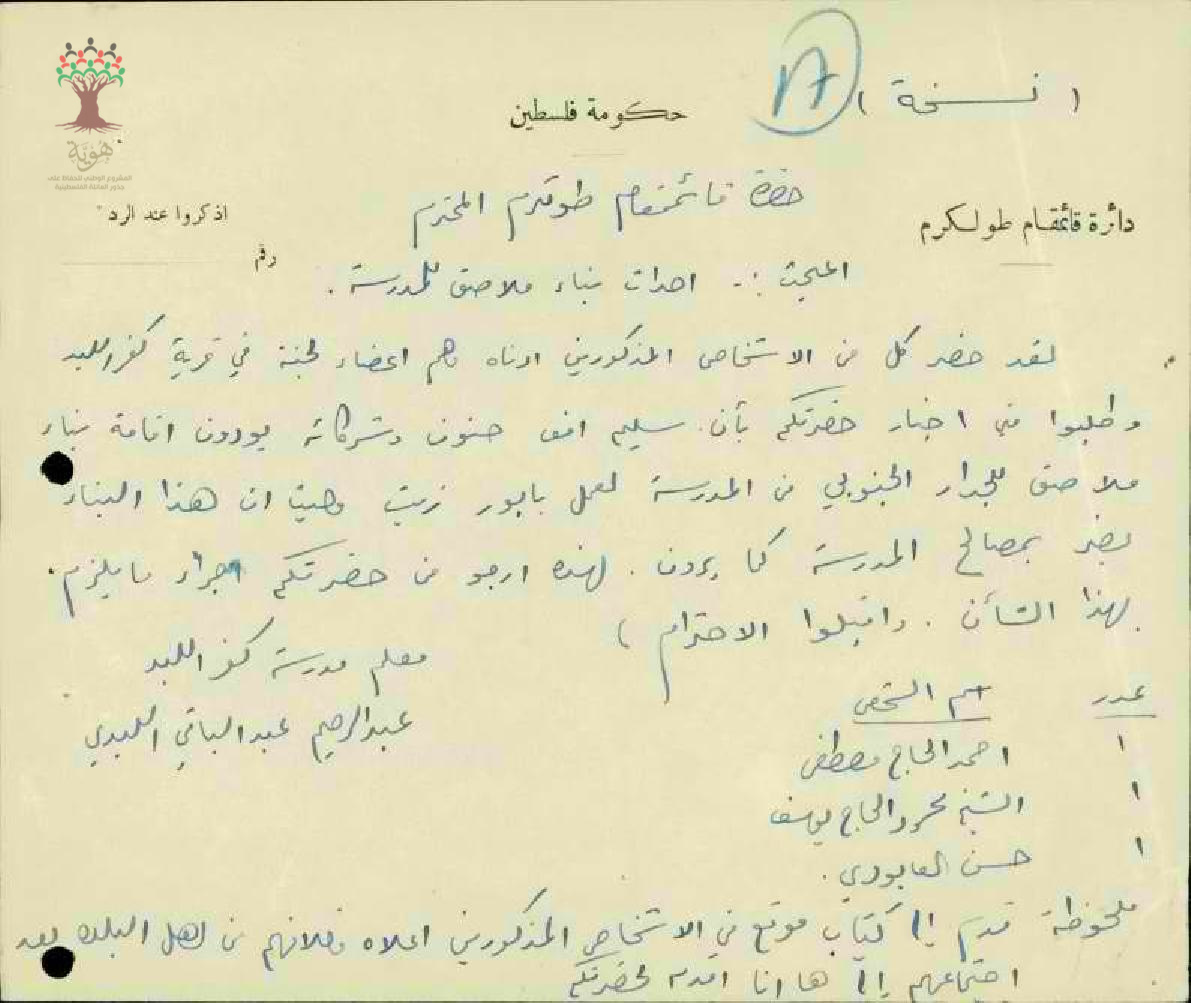 ( نسخة )
١٧
حكومة فلسطين
هُوِيَّة
المشروع الوطني للحفاظ على
جذور العائلة الفلسطينية
دائرة قائمقام طولكرم
اذكروا عند الرد
رقم
حضرة قائمقام طولكرم المحترم
المبحث :- احداث بناء ملاصق للمدرسة .
لقد حضر كل من الاشخاص المذكورين ادناه وهم اعضاء لجنة في قرية كفر اللبد
وطلبوا مني اخبار حضرتكم بأن سليم افندي حنون وشركائه يودون اقامة بناء
ملاصق للجدار الجنوبي من المدرسة لعمل بابور زيت وحيث ان هذا البناء
يضر بمصالح المدرسة كما يرون . لهذه ارجو من حضرتكم اجراء ما يلزم .
بهذا الشأن . واقبلوا الاحترام )
معلم مدرسة كفر اللبد
عبد الرحيم عبد الباقي اللبدي
عدد اسم الشخص
١ احمد الحاج مصطفى
١ الشيخ محمود الحاج يوسف
١ حسن العابودي .
ملحوظة قدم الي كتاب موقع من الاشخاص المذكورين اعلاه من اهل البلده بعد
اجتماعهم الي ها انا اقدمه لحضرتكم